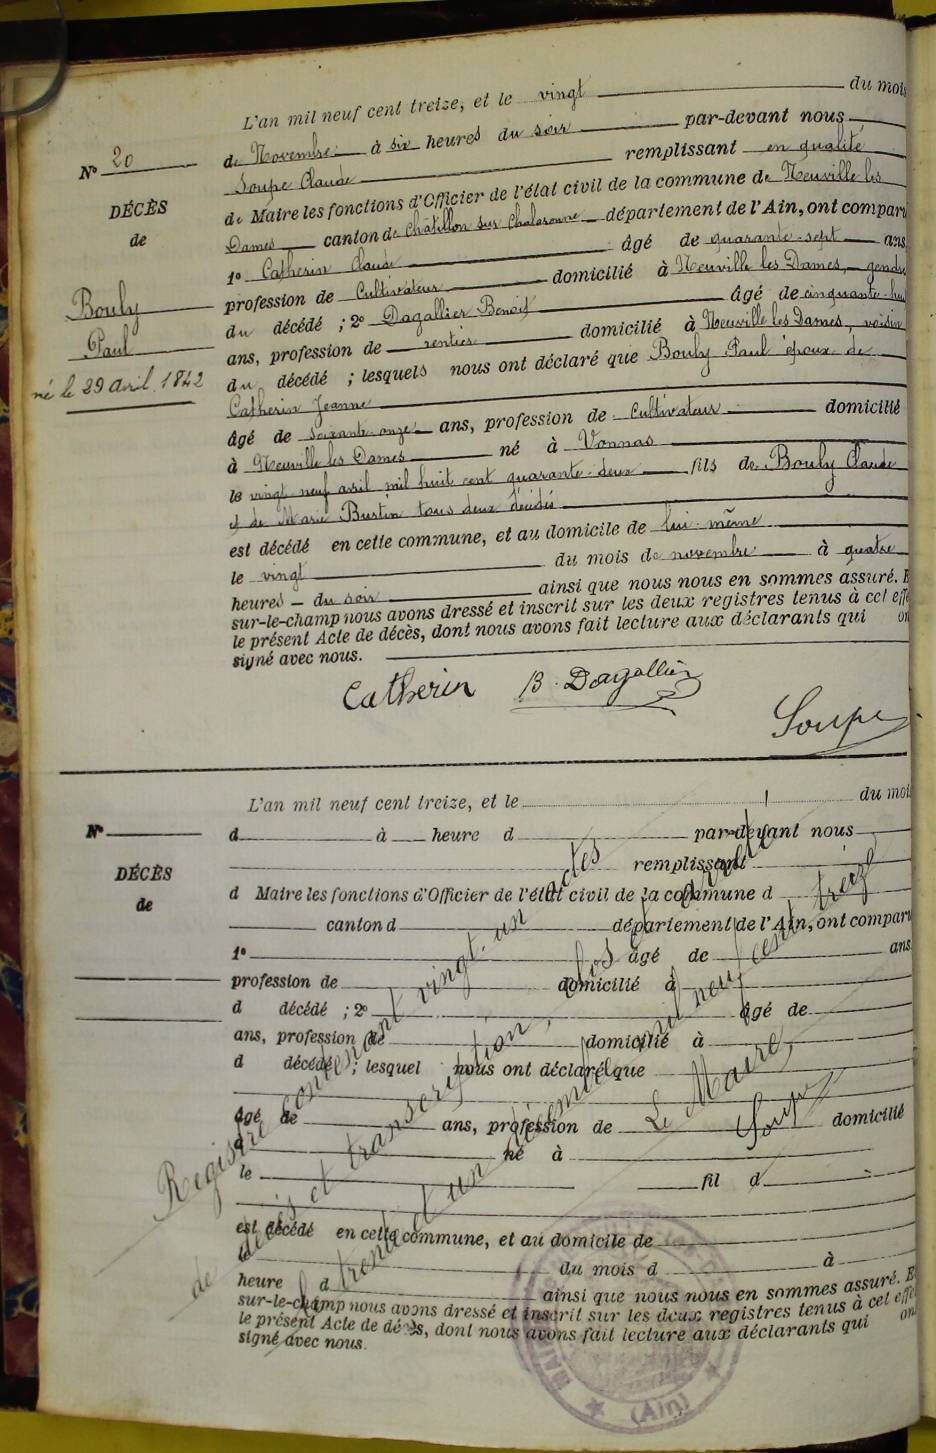 L'an mil neuf cent treize, et le vingt du mois
de Novembre à six heures du soir par-devant nous
Soupe Claude remplissant en qualité
de Maire les fonctions d'Officier de l'état civil de la commune de Neuville les
Dames canton de Châtillon sur Chalaronne département de l'Ain, ont comparu
1° Catherin Claude âgé de quarante-sept ans
profession de Cultivateur domicilié à Neuville les Dames, gendre
du décédé ; 2° Dagallier Benoît âgé de cinquante-huit
ans, profession de rentier domicilié à Neuville les Dames, voisin
du décédé ; lesquels nous ont déclaré que Bouly Paul époux de
Catherin Jeanne
âgé de soixante-onze ans, profession de Cultivateur domicilié
à Neuville les Dames né à Vonnas
le vingt neuf avril mil huit cent quarante-deux fils de Bouly Claude
et de Marie Bustin tous deux décédés
est décédé en cette commune, et au domicile de lui-même
le vingt du mois de novembre à quatre
heures du soir ainsi que nous nous en sommes assuré. E
sur-le-champ nous avons dressé et inscrit sur les deux registres tenus à cet effe
le présent Acte de décès, dont nous avons fait lecture aux déclarants qui on
signé avec nous.
N° 20
DÉCÈS
de
Bouly
Paul
né le 29 avril 1842
Catherin B. Dagallier
Soupe
L'an mil neuf cent treize, et le du mois
N°
d à heure d par-devant nous
remplissant
DÉCÈS
de
d Maire les fonctions d'Officier de l'état civil de la commune d
canton d département de l'Ain, ont comparu
1° âgé de ans
profession de domicilié à
d décédé ; 2° âgé de
ans, profession de domicilié à
d décédé ; lesquel nous ont déclaré que
âgé de ans, profession de domicilié
à né à
le fil d
est décédé en cette commune, et au domicile de
le du mois d à
heure d ainsi que nous nous en sommes assuré. E
sur-le-champ nous avons dressé et inscrit sur les deux registres tenus à cet effe
le présent Acte de décès, dont nous avons fait lecture aux déclarants qui on
signé avec nous.
Registre contenant vingt-un actes
de décès et transcription, clos et arrêté
le trente et un décembre mil neuf cent treize
Le Maire,
Soupe
(Ain)